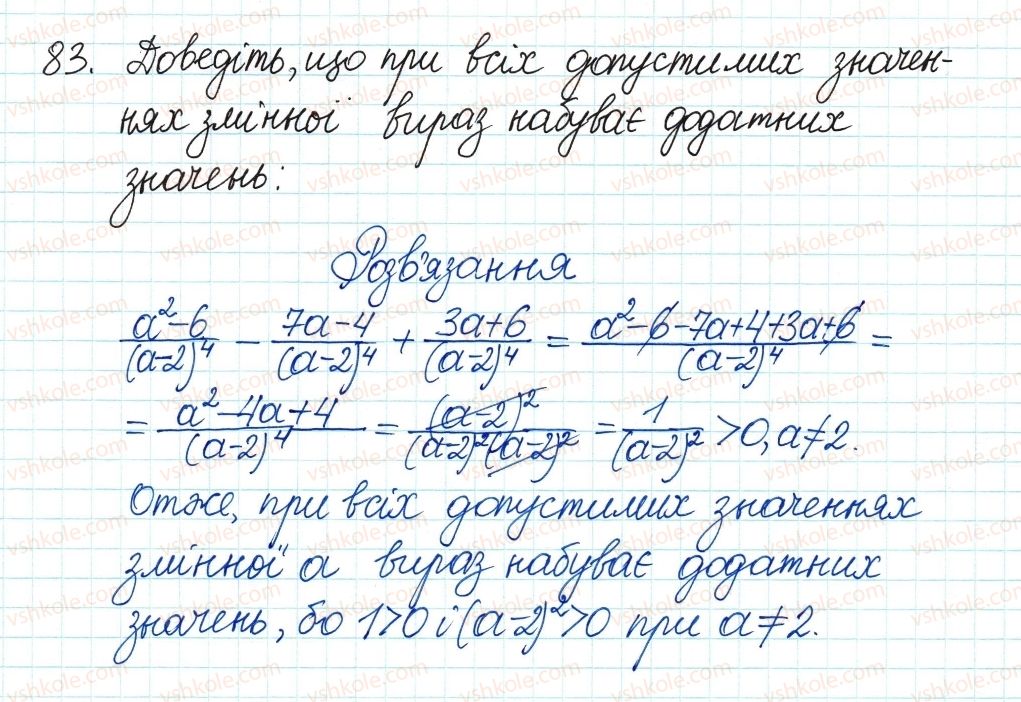 83. Доведіть, що при всіх допустимих значен-
нях змінної вираз набуває додатних
значень:
Розв'язання
(a²-6)/(a-2)⁴ - (7a-4)/(a-2)⁴ + (3a+6)/(a-2)⁴ = (a²-6-7a+4+3a+6)/(a-2)⁴ =
= (a²-4a+4)/(a-2)⁴ = (a-2)²/((a-2)²(a-2)²) = 1/(a-2)² >0, a≠2.
Отже, при всіх допустимих значеннях
змінної a вираз набуває додатних
значень, бо 1>0 і (a-2)²>0 при a≠2.